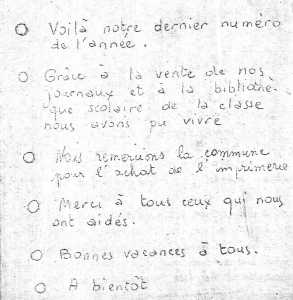 Voilà notre dernier numéro
de l'année.
Grâce à la vente de nos
journaux et à la bibliothè-
que scolaire de la classe
nous avons pu vivre
Nous remercions la commune
pour l'achat de l'imprimerie
Merci à tous ceux qui nous
ont aidés.
Bonnes vacances à tous.
A bientôt